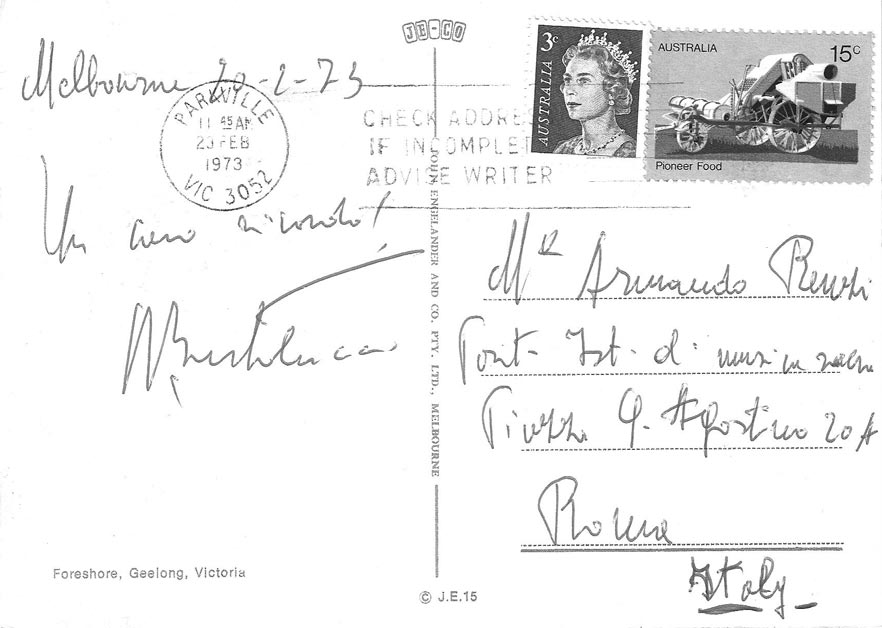 JE-CO
Melbourne 20-2-73
PARKVILLE
11 45 AM
20 FEB
1973
VIC 3052
CHECK ADDRE
IF INCOMPLET
ADVISE WRITER
3c
AUSTRALIA
AUSTRALIA 15c
Pioneer Food
Un caro ricordo!
Bartolucci
JOHN ENGELANDER AND CO. PTY. LTD., MELBOURNE
Mr Armando Renzi
Pont. Ist. di musica sacra
Piazza S. Agostino 20 A
Roma
Italy
Foreshore, Geelong, Victoria
© J.E.15